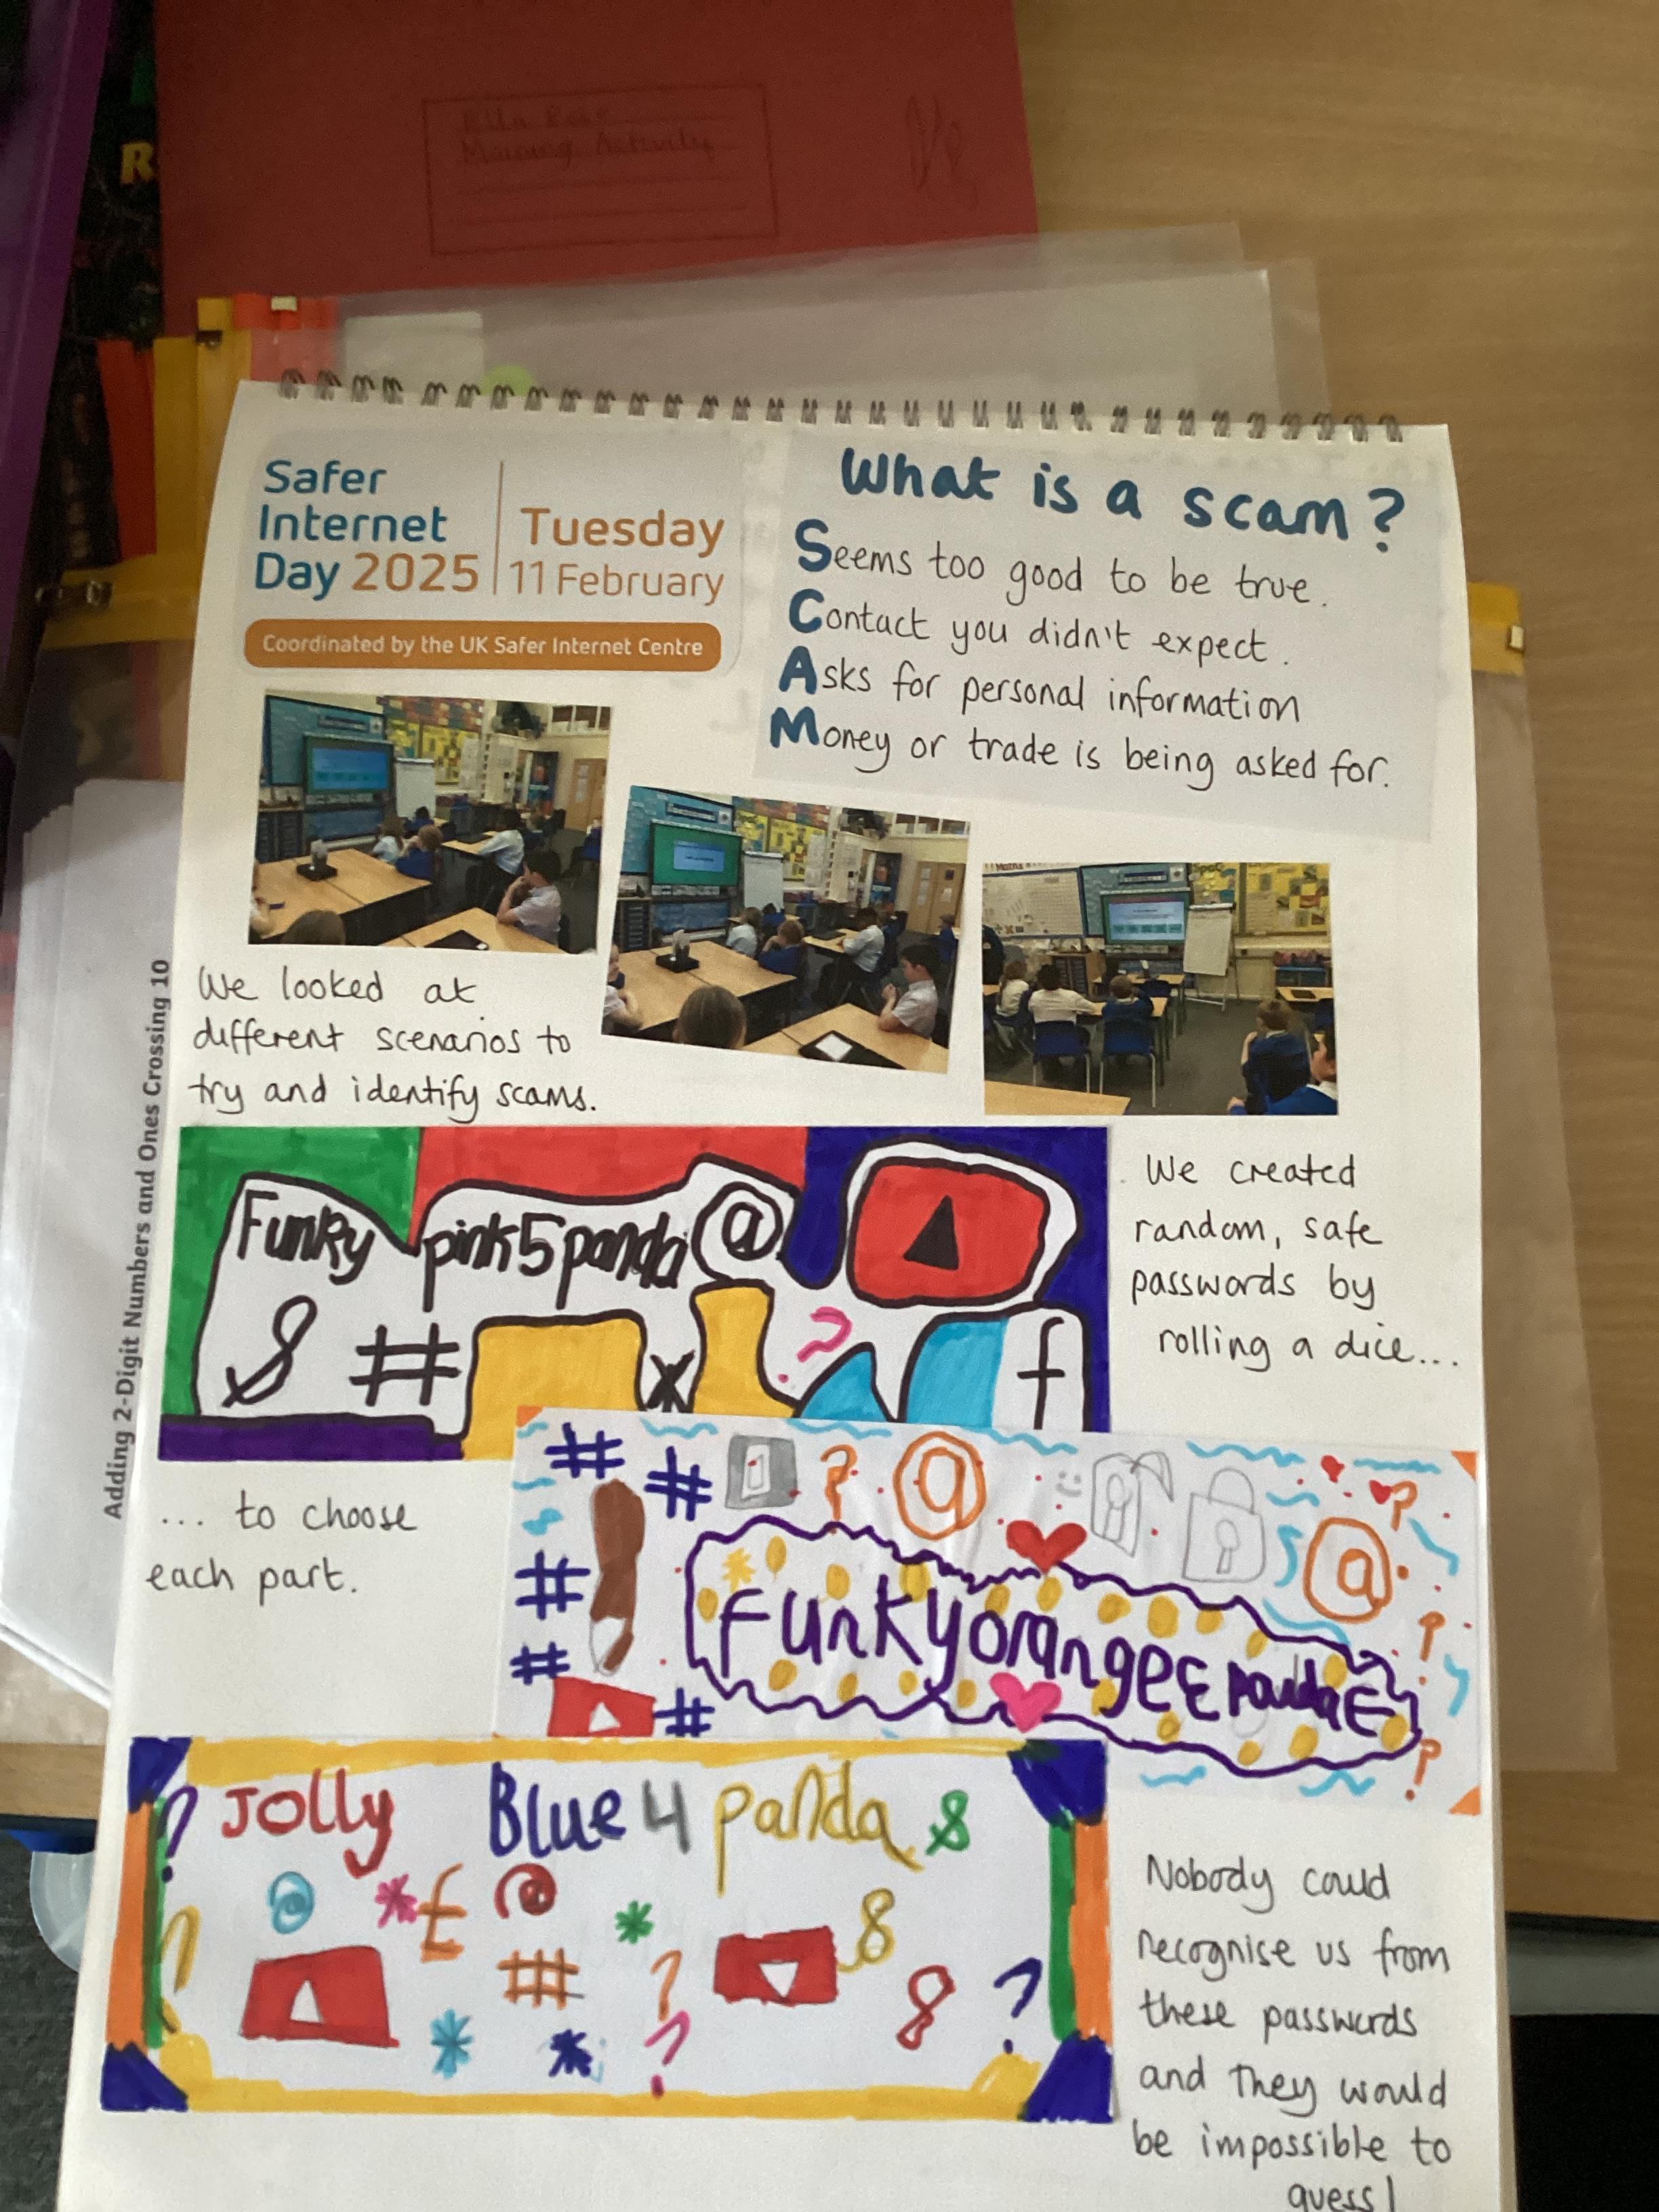 Morning Activity
R
Safer
Internet
Day 2025
Tuesday
11 February
Coordinated by the UK Safer Internet Centre
What is a scam?
Seems too good to be true.
Contact you didn't expect.
Asks for personal information
Money or trade is being asked for.
We looked at
different scenarios to
try and identify scams.
Adding 2-Digit Numbers and Ones Crossing 10
Funky pink5panda@
& # x ? f
We created
random, safe
passwords by
rolling a dice...
... to choose
each part.
# # ? @
@ ?
#
#
#
FunkyorangeEpandaE
?
?
Jolly Blue 4 panda &
? @ * £ @ * 8
? # ? 8 ?
* * ?
Nobody could
recognise us from
these passwords
and they would
be impossible to
guess!